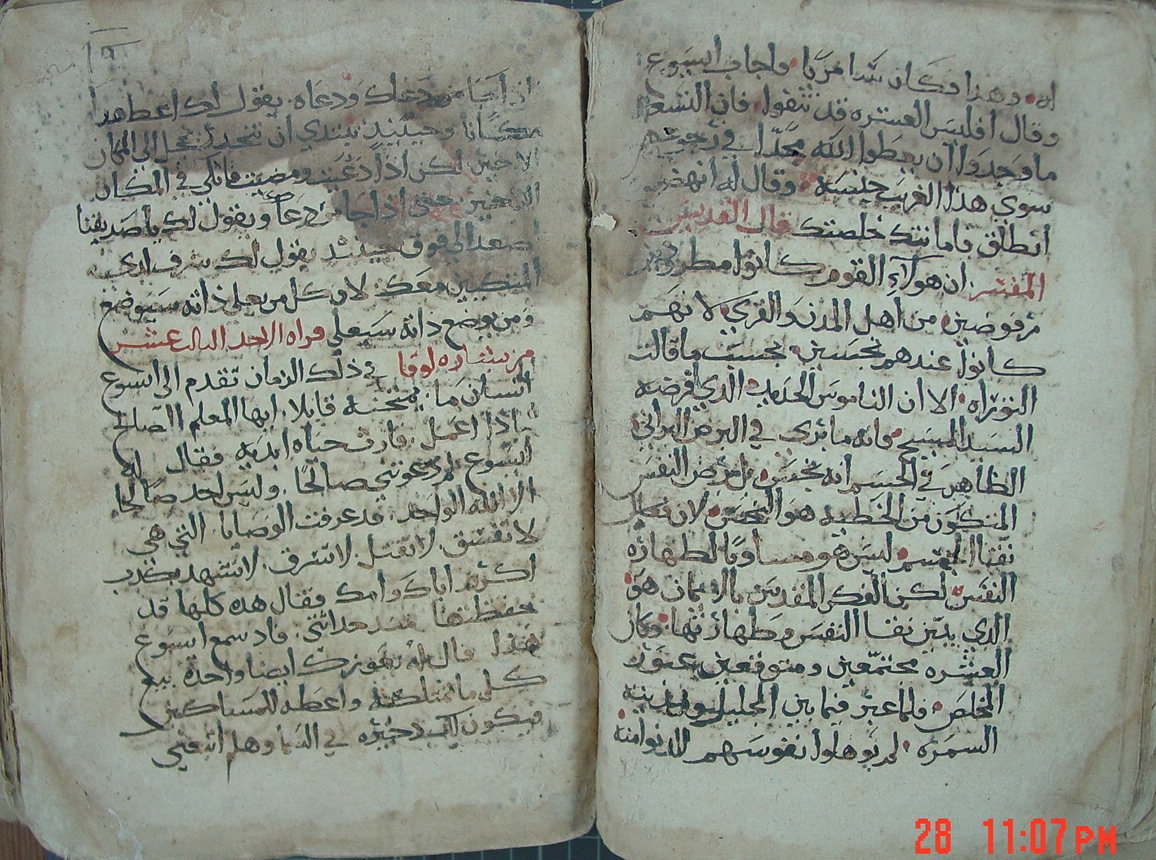 له وهذا فكان شامريا واجاب ايسوع
وقال افليس العشره قد تنقوا فان التسعه
ما وجدوا ان يعطوا الله مجدا في رجوعهم
سوي هذا الغريب جنسه وقال له انهض
انطلق فامانتك خلصتك قال القديس
المفسر ان هولاء القوم كانوا مطرودين
مرفوضين من اهل المدن والقري لانهم
كانوا عندهم نجسين بحسب ما قالت
التوراه الا ان الناموس الجديد الذي افرضه
السيد المسيح فانه ما يري في البرص البراني
الظاهر في الجسم انه نجس بل برص النفس
المتكون من الخطيه هو النجس لان
نقا الجسم ليس هو مساويا لطهارة
النفس لكن الفكر المقدس بالايمان هو
الذي يبين نقا النفس وطهارتها وكان
العشره مجتمعين ومتوقعين عبور
المخلص ولما عبر فيما بين الجليل ومدينة
السمره لم يوهلوا نفوسهم للدنو امنه
١٩
اذا جا من دعاك ودعاه يقول لك اعط هذا
مكانا وحينيذ تبتدي ان تخجل الي المكان
الاخير لكن اذا دعيت ومضيت فاتكي في المكان
الاخير حتي اذا جا من دعاك ويقول لك يا صديقنا
اصعد الي فوق حينيذ يقول لك شرف لدي
المتكيين معك لان كل من يعلي ذاته سيوضع
ومن يوضع ذاته سيعلي قراه الاحد الثالث عشر
من بشاره لوقا في ذلك الزمان تقدم الي ايسوع
انسان ما يمتحنه قايلا ايها المعلم الصالح
ماذا اعمل فارث حياه ابديه فقال له
ايسوع لم تدعوني صالحا وليس احد صالحا
الا الله الواحد قد عرفت الوصايا التي هي
لا تفسق لا تقتل لا تسرق لا تشهد بكذب
اكرم اباك وامك فقال هذه كلها قد
حفظتها منذ حداثتي فاذ سمع ايسوع
هذا قال له يعوزك ايضا واحدة بيع
كل ما تملكه واعطه للمساكين
فيكون لك ذخيره في السما وهلم اتبعني
28 11:07PM